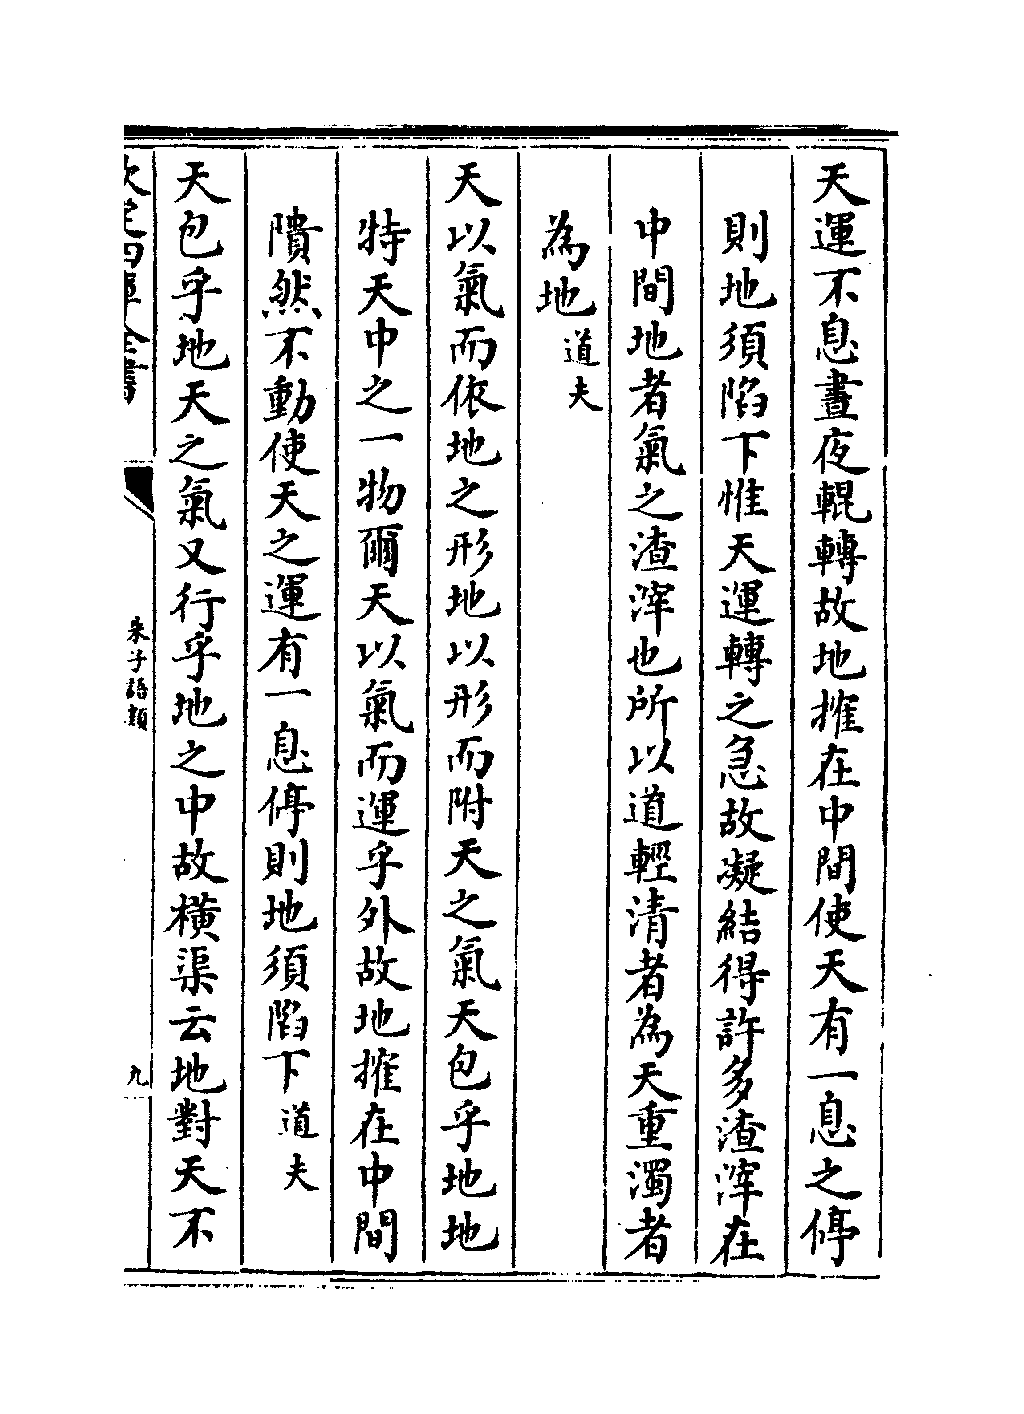 天運不息晝夜輥轉故地搉在中間使天有一息之停
則地須陷下惟天運轉之急故凝結得許多渣滓在
中間地者氣之渣滓也所以道輕清者為天重濁者
為地道夫
天以氣而依地之形地以形而附天之氣天包乎地地
特天中之一物爾天以氣而運乎外故地搉在中間
隤然不動使天之運有一息停則地須陷下道夫
天包乎地天之氣又行乎地之中故橫渠云地對天不
欽定四庫全書
朱子語類
九